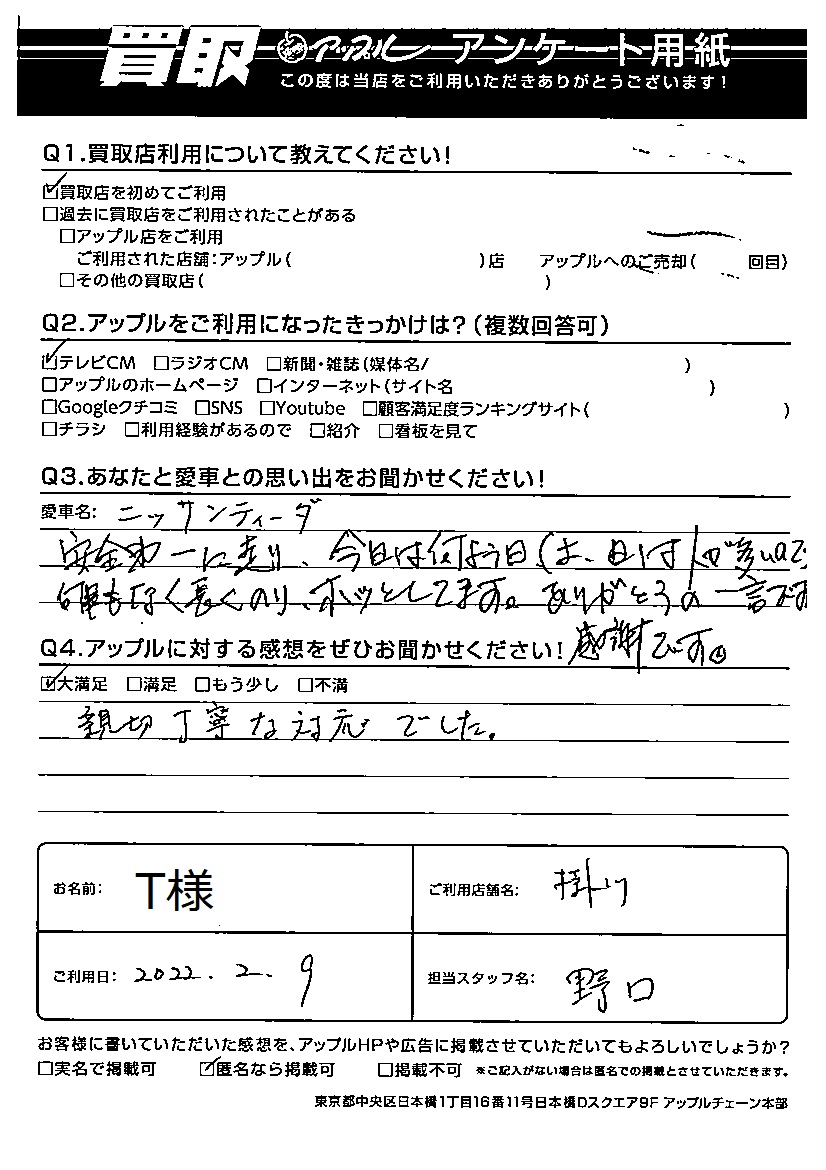 買取 アップル アンケート用紙
この度は当店をご利用いただきありがとうございます!
Q1.買取店利用について教えてください!
☑買取店を初めてご利用
□過去に買取店をご利用されたことがある
□アップル店をご利用
ご利用された店舗:アップル( )店 アップルへのご売却( 回目)
□その他の買取店( )
Q2.アップルをご利用になったきっかけは?(複数回答可)
☑テレビCM □ラジオCM □新聞・雑誌(媒体名/ )
□アップルのホームページ □インターネット(サイト名 )
□Googleクチコミ □SNS □Youtube □顧客満足度ランキングサイト( )
□チラシ □利用経験があるので □紹介 □看板を見て
Q3.あなたと愛車との思い出をお聞かせください!
愛車名: ニッサンティーダ
安全第一に走り、今日は何よう日(は、日は人が多いので
何事もなく長くのり、ホッとしてます。ありがとうの一言です
感謝です。
Q4.アップルに対する感想をぜひお聞かせください!
☑大満足 □満足 □もう少し □不満
親切丁寧な対応でした。
お名前: T様
ご利用店舗名: 掛川
ご利用日: 2022.2.9
担当スタッフ名: 野口
お客様に書いていただいた感想を、アップルHPや広告に掲載させていただいてもよろしいでしょうか?
□実名で掲載可 ☑匿名なら掲載可 □掲載不可 ※ご記入がない場合は匿名での掲載とさせていただきます。
東京都中央区日本橋1丁目16番11号日本橋Dスクエア9F アップルチェーン本部